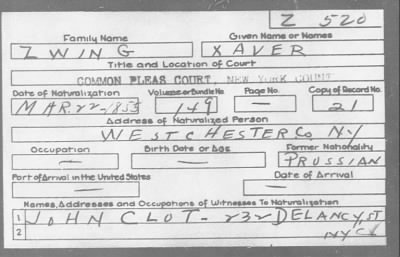 Z 520
Family Name Given Name or Names
ZWING XAVER
Title and Location of Court
COMMON PLEAS COURT, NEW YORK COUNTY
Date of Naturalization Volume or Bundle No. Page No. Copy of Record No.
MAR. 22-1855 149 — 21
Address of Naturalized Person
WESTCHESTER Co. NY
Occupation Birth Date or Age Former Nationality
— — PRUSSIAN
Port of Arrival in the United States Date of Arrival
— —
Names, Addresses and Occupations of Witnesses To Naturalization
1 JOHN CLOT- 232 DELANCY, ST
2 NYC